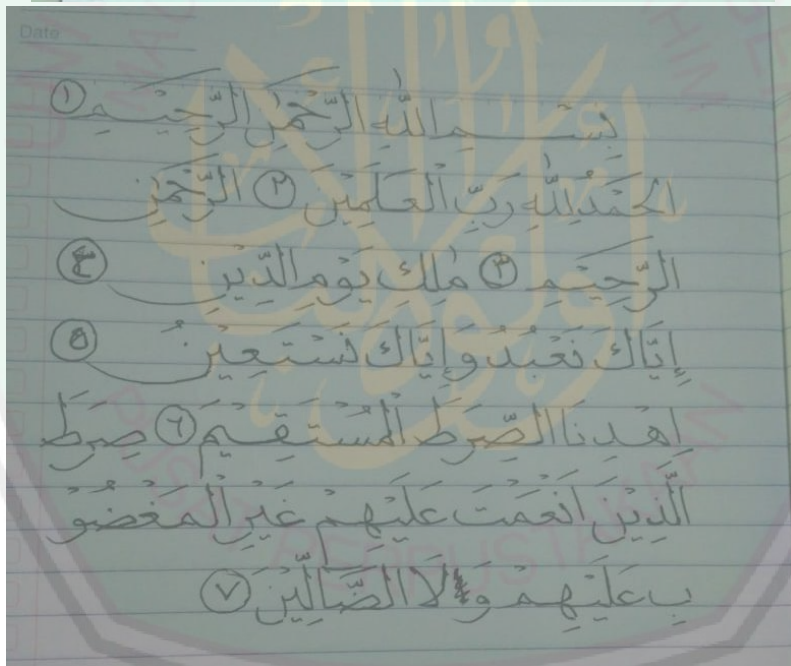 Date
بِسْــمِ اللّٰهِ الرَّحْمٰنِ الرَّحِيْمِ ①
الْحَمْدُ لِلّٰهِ رَبِّ الْعٰلَمِيْنَ ② الرَّحْمٰنِ
الرَّحِيْمِ ③ مٰلِكِ يَوْمِ الدِّيْنِ ④
إِيَّاكَ نَعْبُدُ وَإِيَّاكَ نَسْتَعِيْنُ ⑤
اِهْدِنَا الصِّرَطَ الْمُسْتَقِيْمَ ⑥ صِرَطَ
الَّذِيْنَ اَنْعَمْتَ عَلَيْهِمْ غَيْرِ الْمَغْضُوْ
بِ عَلَيْهِمْ وَلَا الضَّالِّيْنَ ⑦